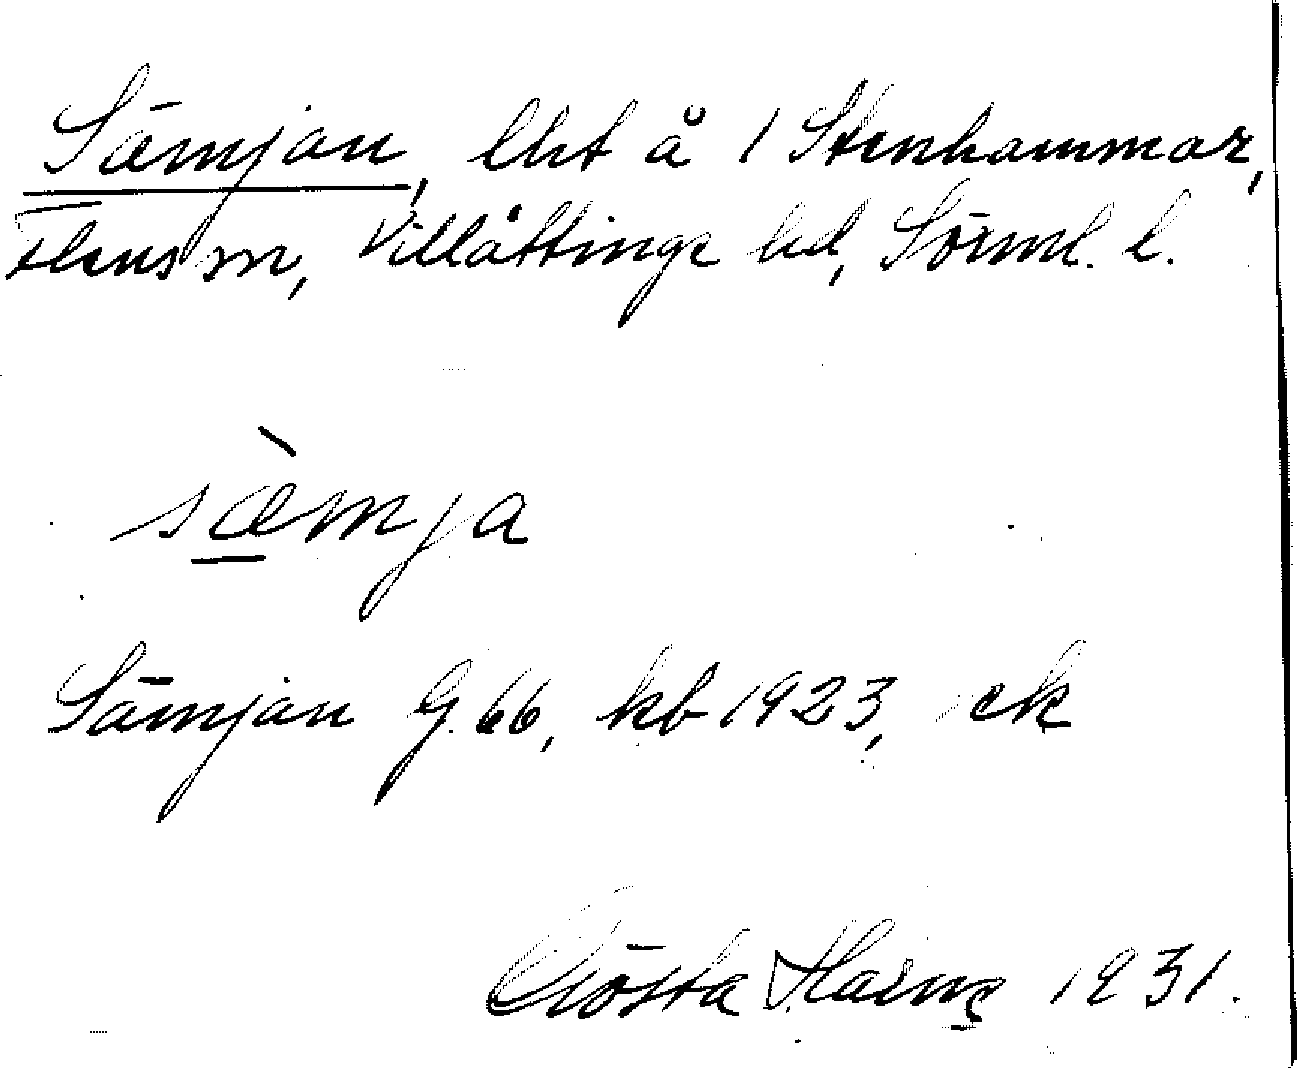 Sämjan, lht å 1 Stenhammar,
Flens sn, Villåttinge hd, Sörml. l.
sæ̀mja
Sämjan G. 66, kb 1923, ek
Gösta 1931.